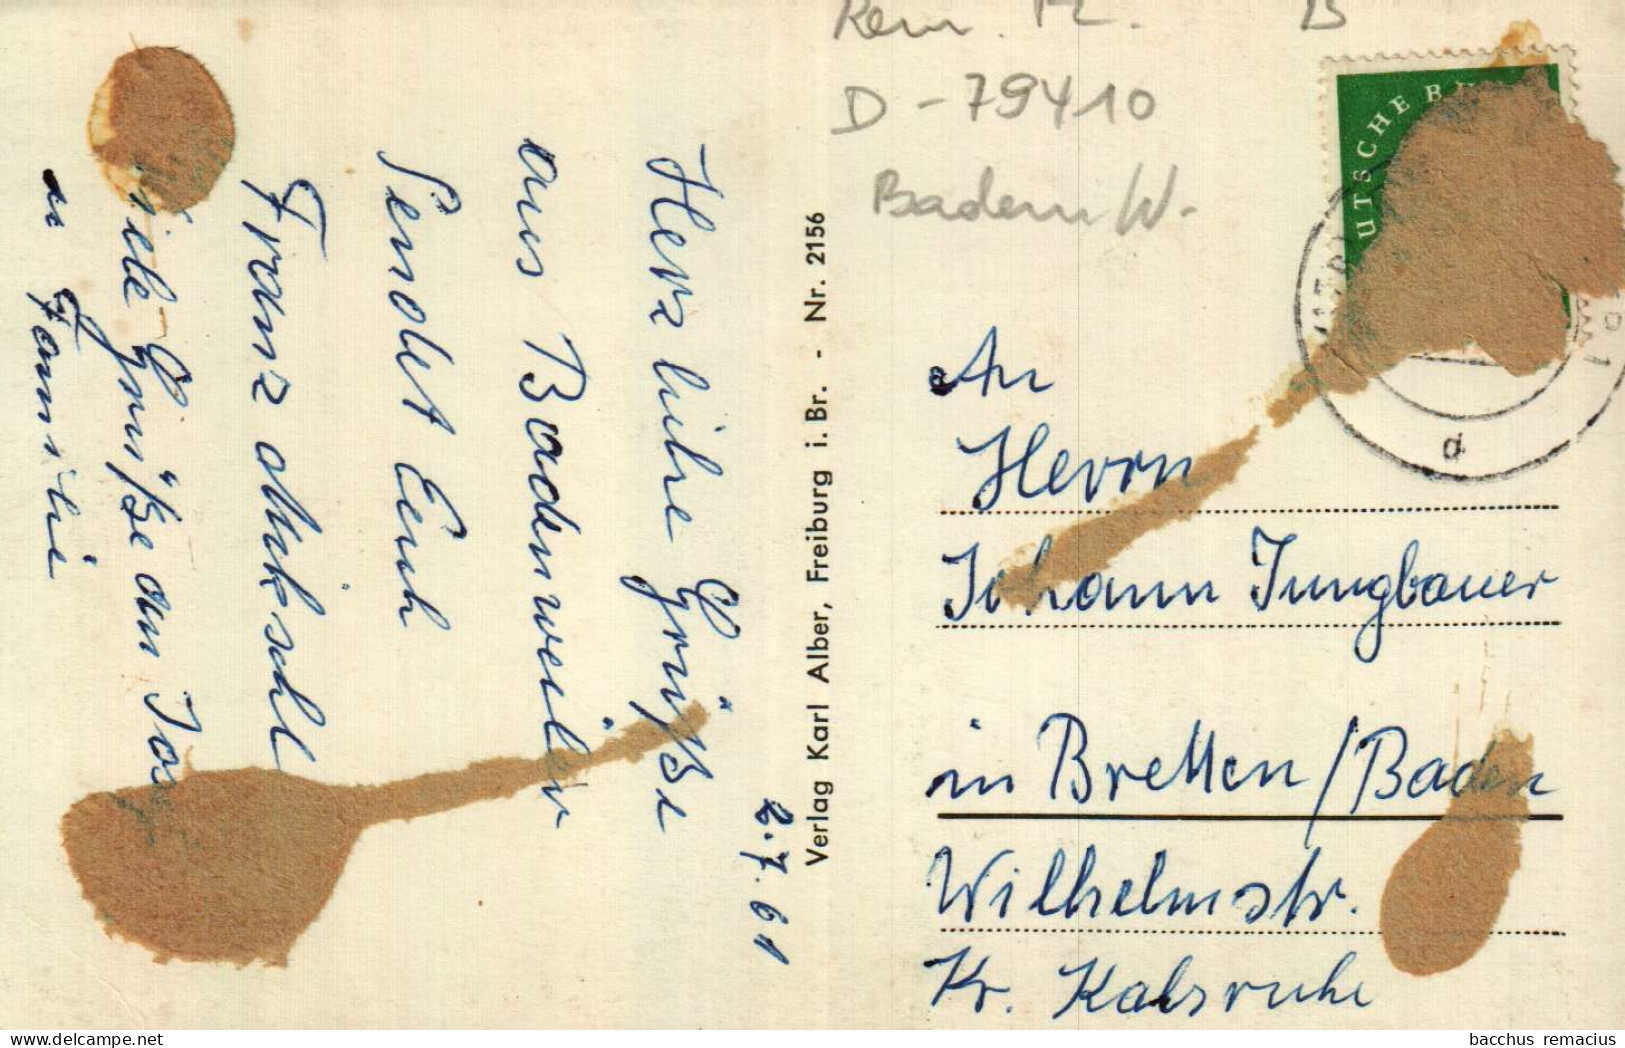 2.7.61
Herzliche Grüße
aus Badenweiler
Sendet Euch
Franz
Viele Grüße an
u Familie
Verlag Karl Alber, Freiburg i. Br. - Nr. 2156
D-79410
Baden/W.
B
UTSCHE B
d
An
Herrn
Johann Jungbauer
in Bretten/Baden
Wilhelmstr.
Kr. Kalsruhe
bacchus remacius